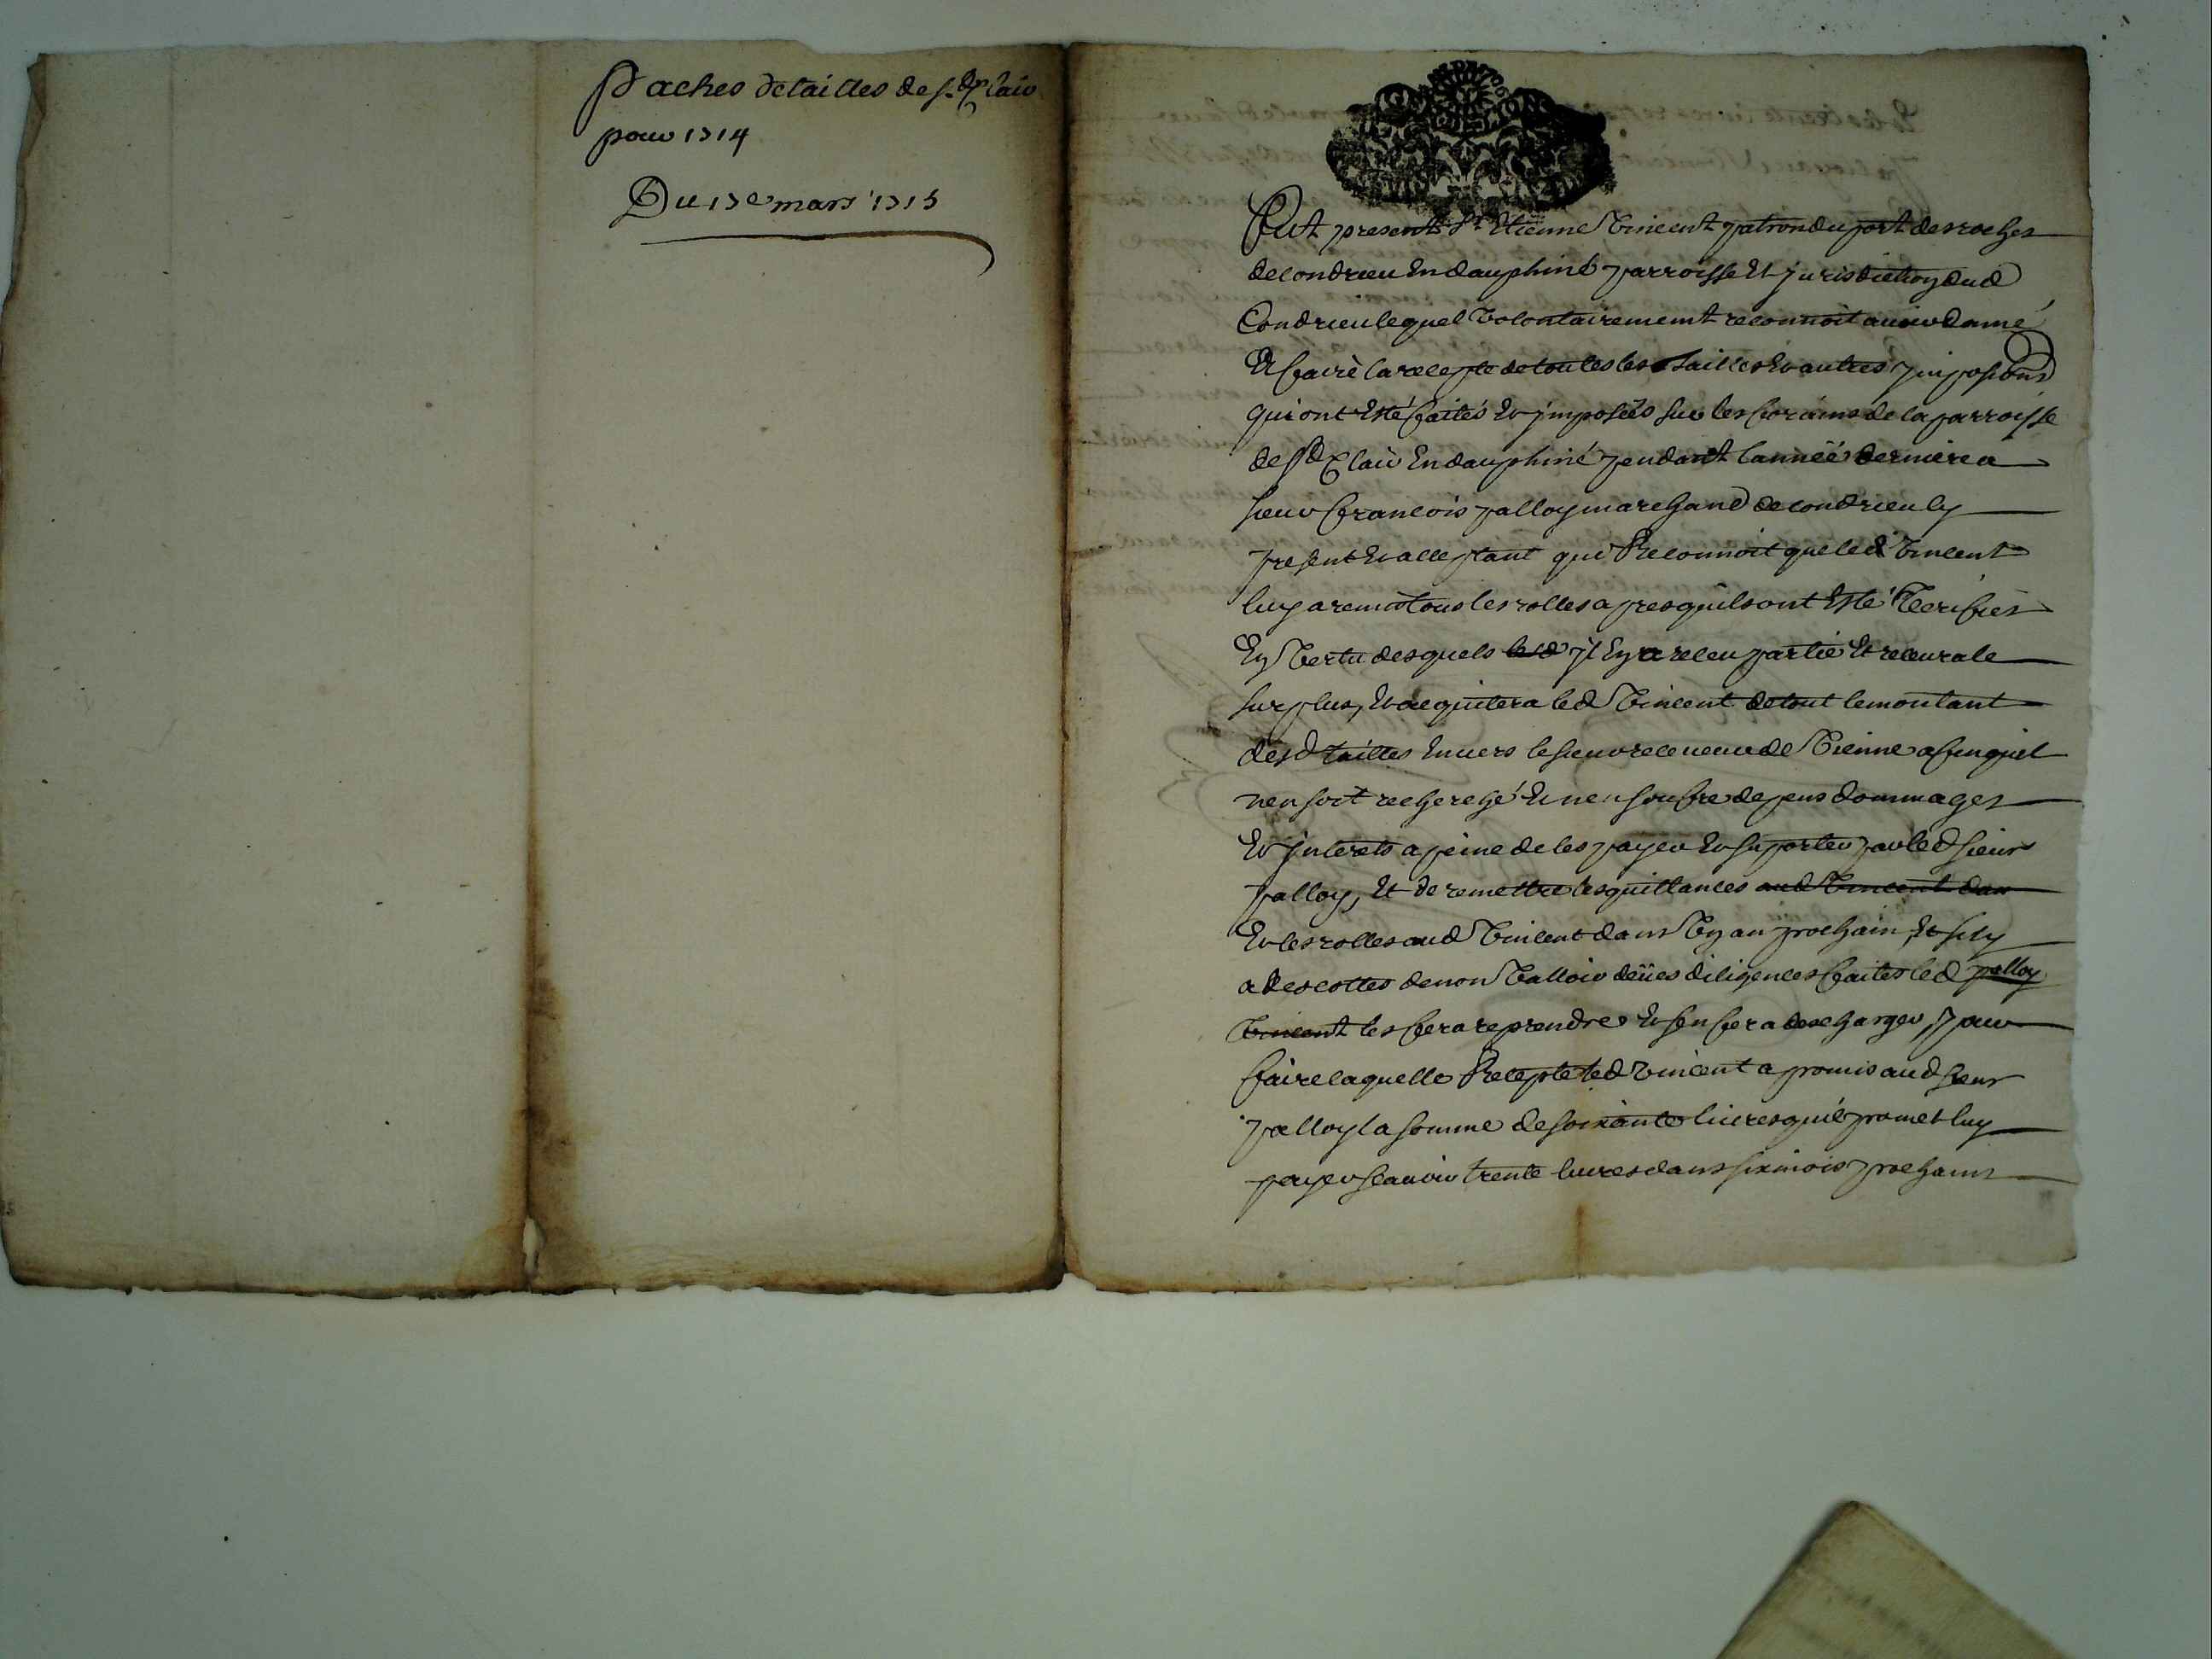 Paches de tailles de st Clair
pour 1714
Du 17e mars 1715
Fut present Sr Etienne Vincent patron du port des roches
de condrieu En dauphiné parroisse Et jurisdiction dud
Condrieu lequel volontairement reconnoit avoir donné
A faire la recepte de toutes les tailles Et autres jmposions
qui ont Esté faites Et jmposées sur les forains de la parroisse
de st Clair En dauphiné pendant lannéé derniere a
sieur francois palloy marchand de condrieu Cy
present Et acceptant qui Reconnoit que led Vincent
luy a remis tous les rolles apres quils ont Esté Verifies
En Vertu desquels led jl En a receu partie Et recevra le
surplus, Et acquitera led Vincent de tout le montant
desd tailles Envers le sieur receveur de Vienne afin quil
nen soit recherché Et nen soufre depens dommages
Et jnterets a peine de les payer Et suporter par led sieur
palloy, Et de remettre les quittances aud Vincent dan
Et les rolles aud Vincent dans Un an prochain, Et sily
a des cottes de non Valloir deües diligences faites led palloy
Vincent les fera reprendre Et sen fera descharger, pour
faire laquelle Recepte led Vincent a promis aud sieur
palloy la somme de soixante livres quil promet luy
payer scavoir trente livres dans six mois prochains